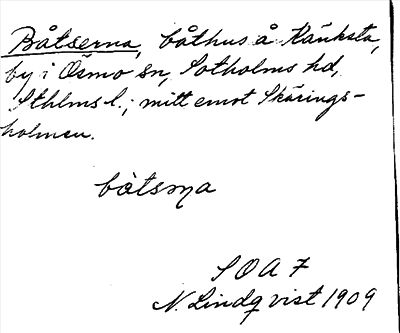 Båtserna, båthus å Kånksta,
by i Ösmo sn, Sotholms hd,
Sthlms l.; mitt emot Skärings-
holmen.
bàtsma
S O A 7
N. Lindqvist 1909